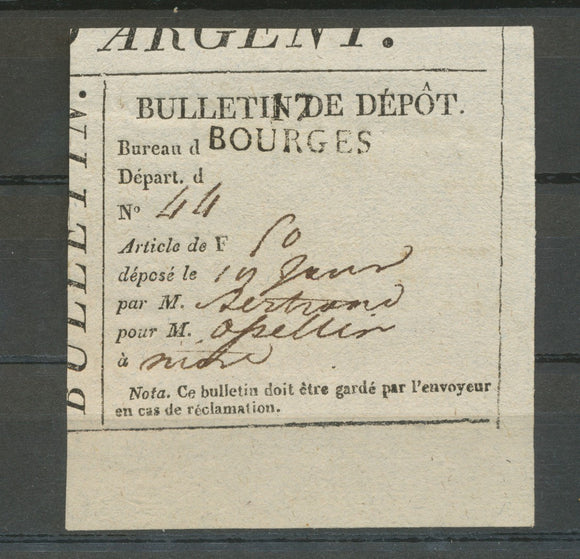 D'ARGENT.
BULLETIN.
BULLETIN DE DÉPÔT.
17
BOURGES
Bureau d
Départ. d
Nº 44
Article de F 50
déposé le 19
par M. Bertrand
pour M.
à
Nota. Ce bulletin doit être gardé par l'envoyeur
en cas de réclamation.